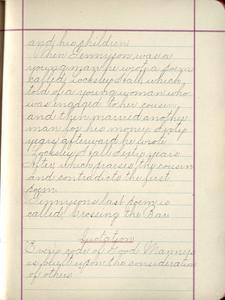 and his children
When Tennyson was a
young man he wrote a poem
called Locksley Hall which
told of a young woman who
was engaged to her cousin
and then married another
man for his money. Sixty
years afterward he wrote
Locksley Hall sixty years
after which praises the cousin
and contradicts the first
poem
Tennysons last poem is
called Crossing the Bar
Quotation
Every code of Good Manners
is built upon the consideration
of others